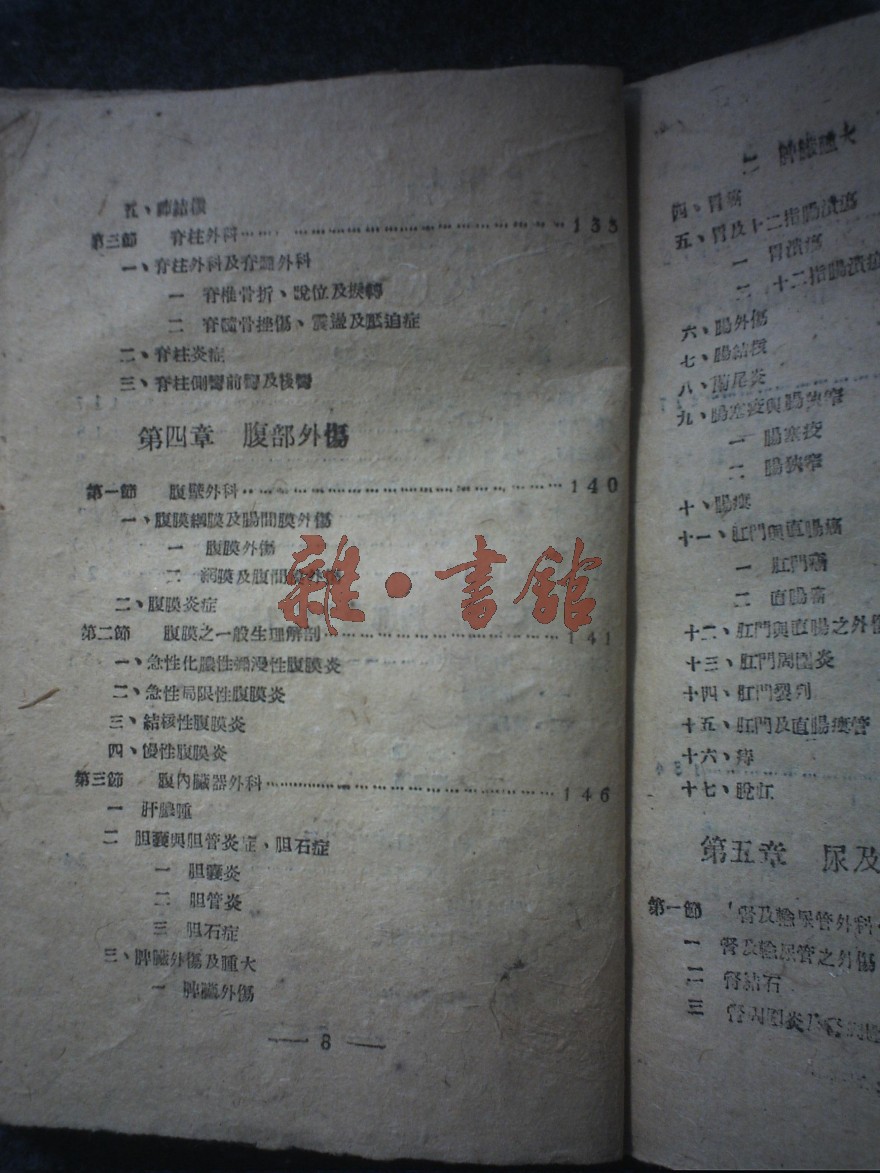 五、肺結核
第三節 脊柱外科…… 135
一、脊柱外科及脊髓外科
一 脊椎骨折、脫位及捩轉
二 脊髓骨挫傷、震盪及壓迫症
二、脊柱炎症
三、脊柱側彎前彎及後彎
第四章 腹部外傷
第一節 腹壁外科…… 140
一、腹膜網膜及腸間膜外傷
一 腹膜外傷
二 網膜及腹間膜外傷
二、腹膜炎症
第二節 腹膜之一般生理解剖…… 141
一、急性化膿性瀰漫性腹膜炎
二、急性局限性腹膜炎
三、結核性腹膜炎
四、慢性腹膜炎
第三節 腹內臟器外科…… 146
一 肝膿腫
二 胆囊與胆管炎症、胆石症
一 胆囊炎
二 胆管炎
三 胆石症
三、脾臟外傷及腫大
一 脾臟外傷
— 8 —
二 脾臟腫大
四、胃癌
五、胃及十二指腸潰瘍
一 胃潰瘍
二 十二指腸潰瘍
六、腸外傷
七、腸結核
八、闌尾炎
九、腸塞疫與腸狹窄
一 腸塞疫
二 腸狹窄
十、腸
十一、肛門與直腸癌
一 肛門癌
二 直腸癌
十二、肛門與直腸之外傷
十三、肛門周圍炎
十四、肛門裂列
十五、肛門及直腸瘻管
十六、痔
十七、脫肛
第五章 尿及
第一節 腎及輸尿管外科
一 腎及輸尿管之外傷
二 腎結石
三 腎周圍炎及腎
雜·書館